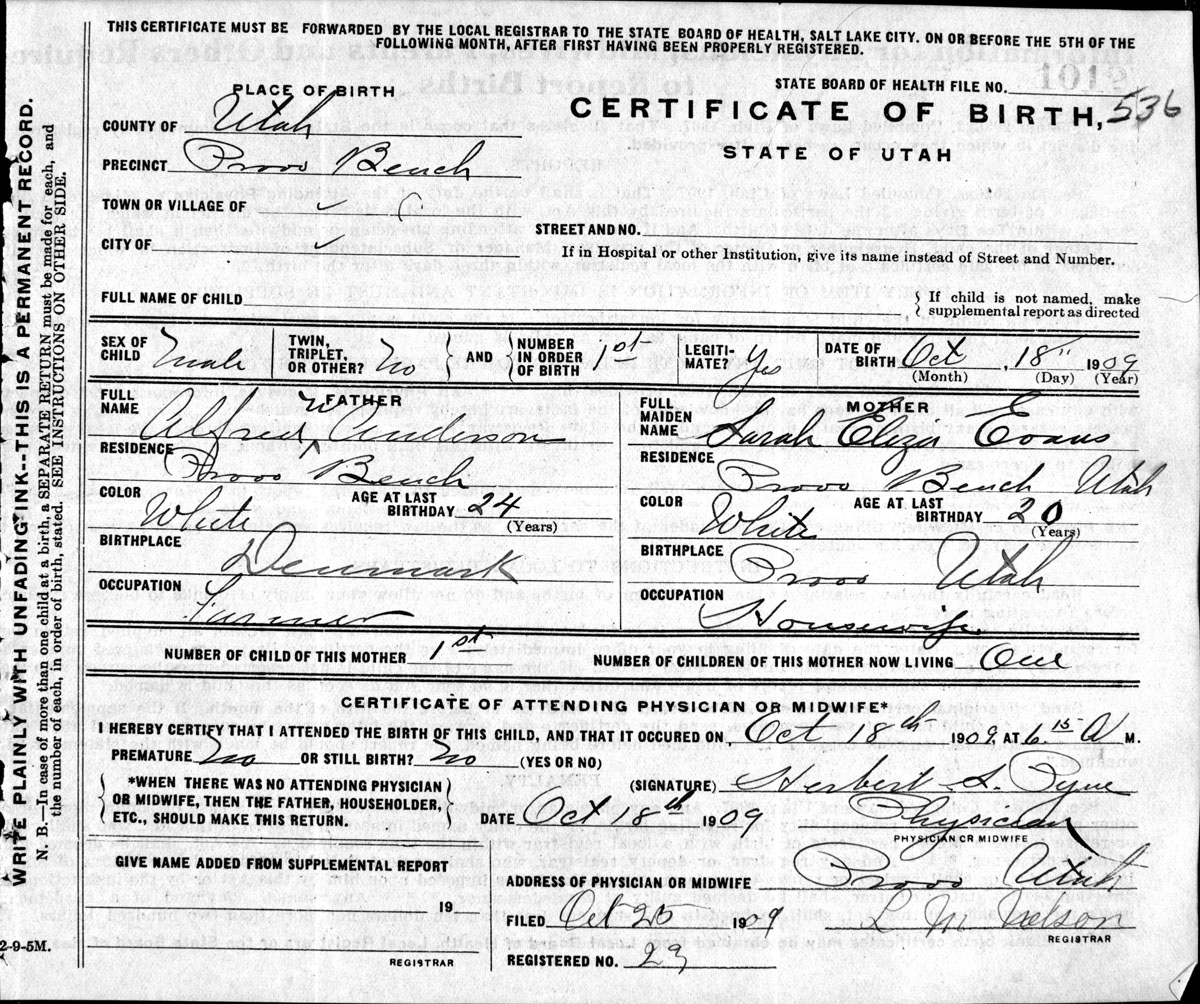 THIS CERTIFICATE MUST BE FORWARDED BY THE LOCAL REGISTRAR TO THE STATE BOARD OF HEALTH, SALT LAKE CITY. ON OR BEFORE THE 5TH OF THE
FOLLOWING MONTH, AFTER FIRST HAVING BEEN PROPERLY REGISTERED.
WRITE PLAINLY WITH UNFADING INK--THIS IS A PERMANENT RECORD.
N. B.—In case of more than one child at a birth, a SEPARATE RETURN must be made for each, and
the number of each, in order of birth, stated. SEE INSTRUCTIONS ON OTHER SIDE.
2-9-5M.
STATE BOARD OF HEALTH FILE NO. 1012
CERTIFICATE OF BIRTH, 536
STATE OF UTAH
PLACE OF BIRTH
COUNTY OF Utah
PRECINCT Provo Bench
TOWN OR VILLAGE OF
STREET AND NO.
CITY OF
If in Hospital or other Institution, give its name instead of Street and Number.
FULL NAME OF CHILD
If child is not named, make
supplemental report as directed
SEX OF CHILD Male
TWIN, TRIPLET, OR OTHER? No
AND
NUMBER IN ORDER OF BIRTH 1st
LEGITI-MATE? Yes
DATE OF BIRTH Oct, 18" 1909
(Month) (Day) (Year)
FATHER
FULL NAME Alfred W Anderson
RESIDENCE Provo Bench
COLOR White
AGE AT LAST BIRTHDAY 24
(Years)
BIRTHPLACE Denmark
OCCUPATION Farmer
MOTHER
FULL MAIDEN NAME Sarah Eliza Evans
RESIDENCE Provo Bench Utah
COLOR White
AGE AT LAST BIRTHDAY 20
(Years)
BIRTHPLACE Provo Utah
OCCUPATION Housewife
NUMBER OF CHILD OF THIS MOTHER 1st
NUMBER OF CHILDREN OF THIS MOTHER NOW LIVING One
CERTIFICATE OF ATTENDING PHYSICIAN OR MIDWIFE*
I HEREBY CERTIFY THAT I ATTENDED THE BIRTH OF THIS CHILD, AND THAT IT OCCURED ON Oct 18th 1909 AT 6.15 A M.
PREMATURE No OR STILL BIRTH? No (YES OR NO)
*WHEN THERE WAS NO ATTENDING PHYSICIAN
OR MIDWIFE, THEN THE FATHER, HOUSEHOLDER,
ETC., SHOULD MAKE THIS RETURN.
(SIGNATURE) Herbert S. Pyne
DATE Oct 18th 1909
Physician
PHYSICIAN OR MIDWIFE
GIVE NAME ADDED FROM SUPPLEMENTAL REPORT
19
REGISTRAR
ADDRESS OF PHYSICIAN OR MIDWIFE Provo Utah
FILED Oct 20 1909
L M Nelson
REGISTRAR
REGISTERED NO. 29